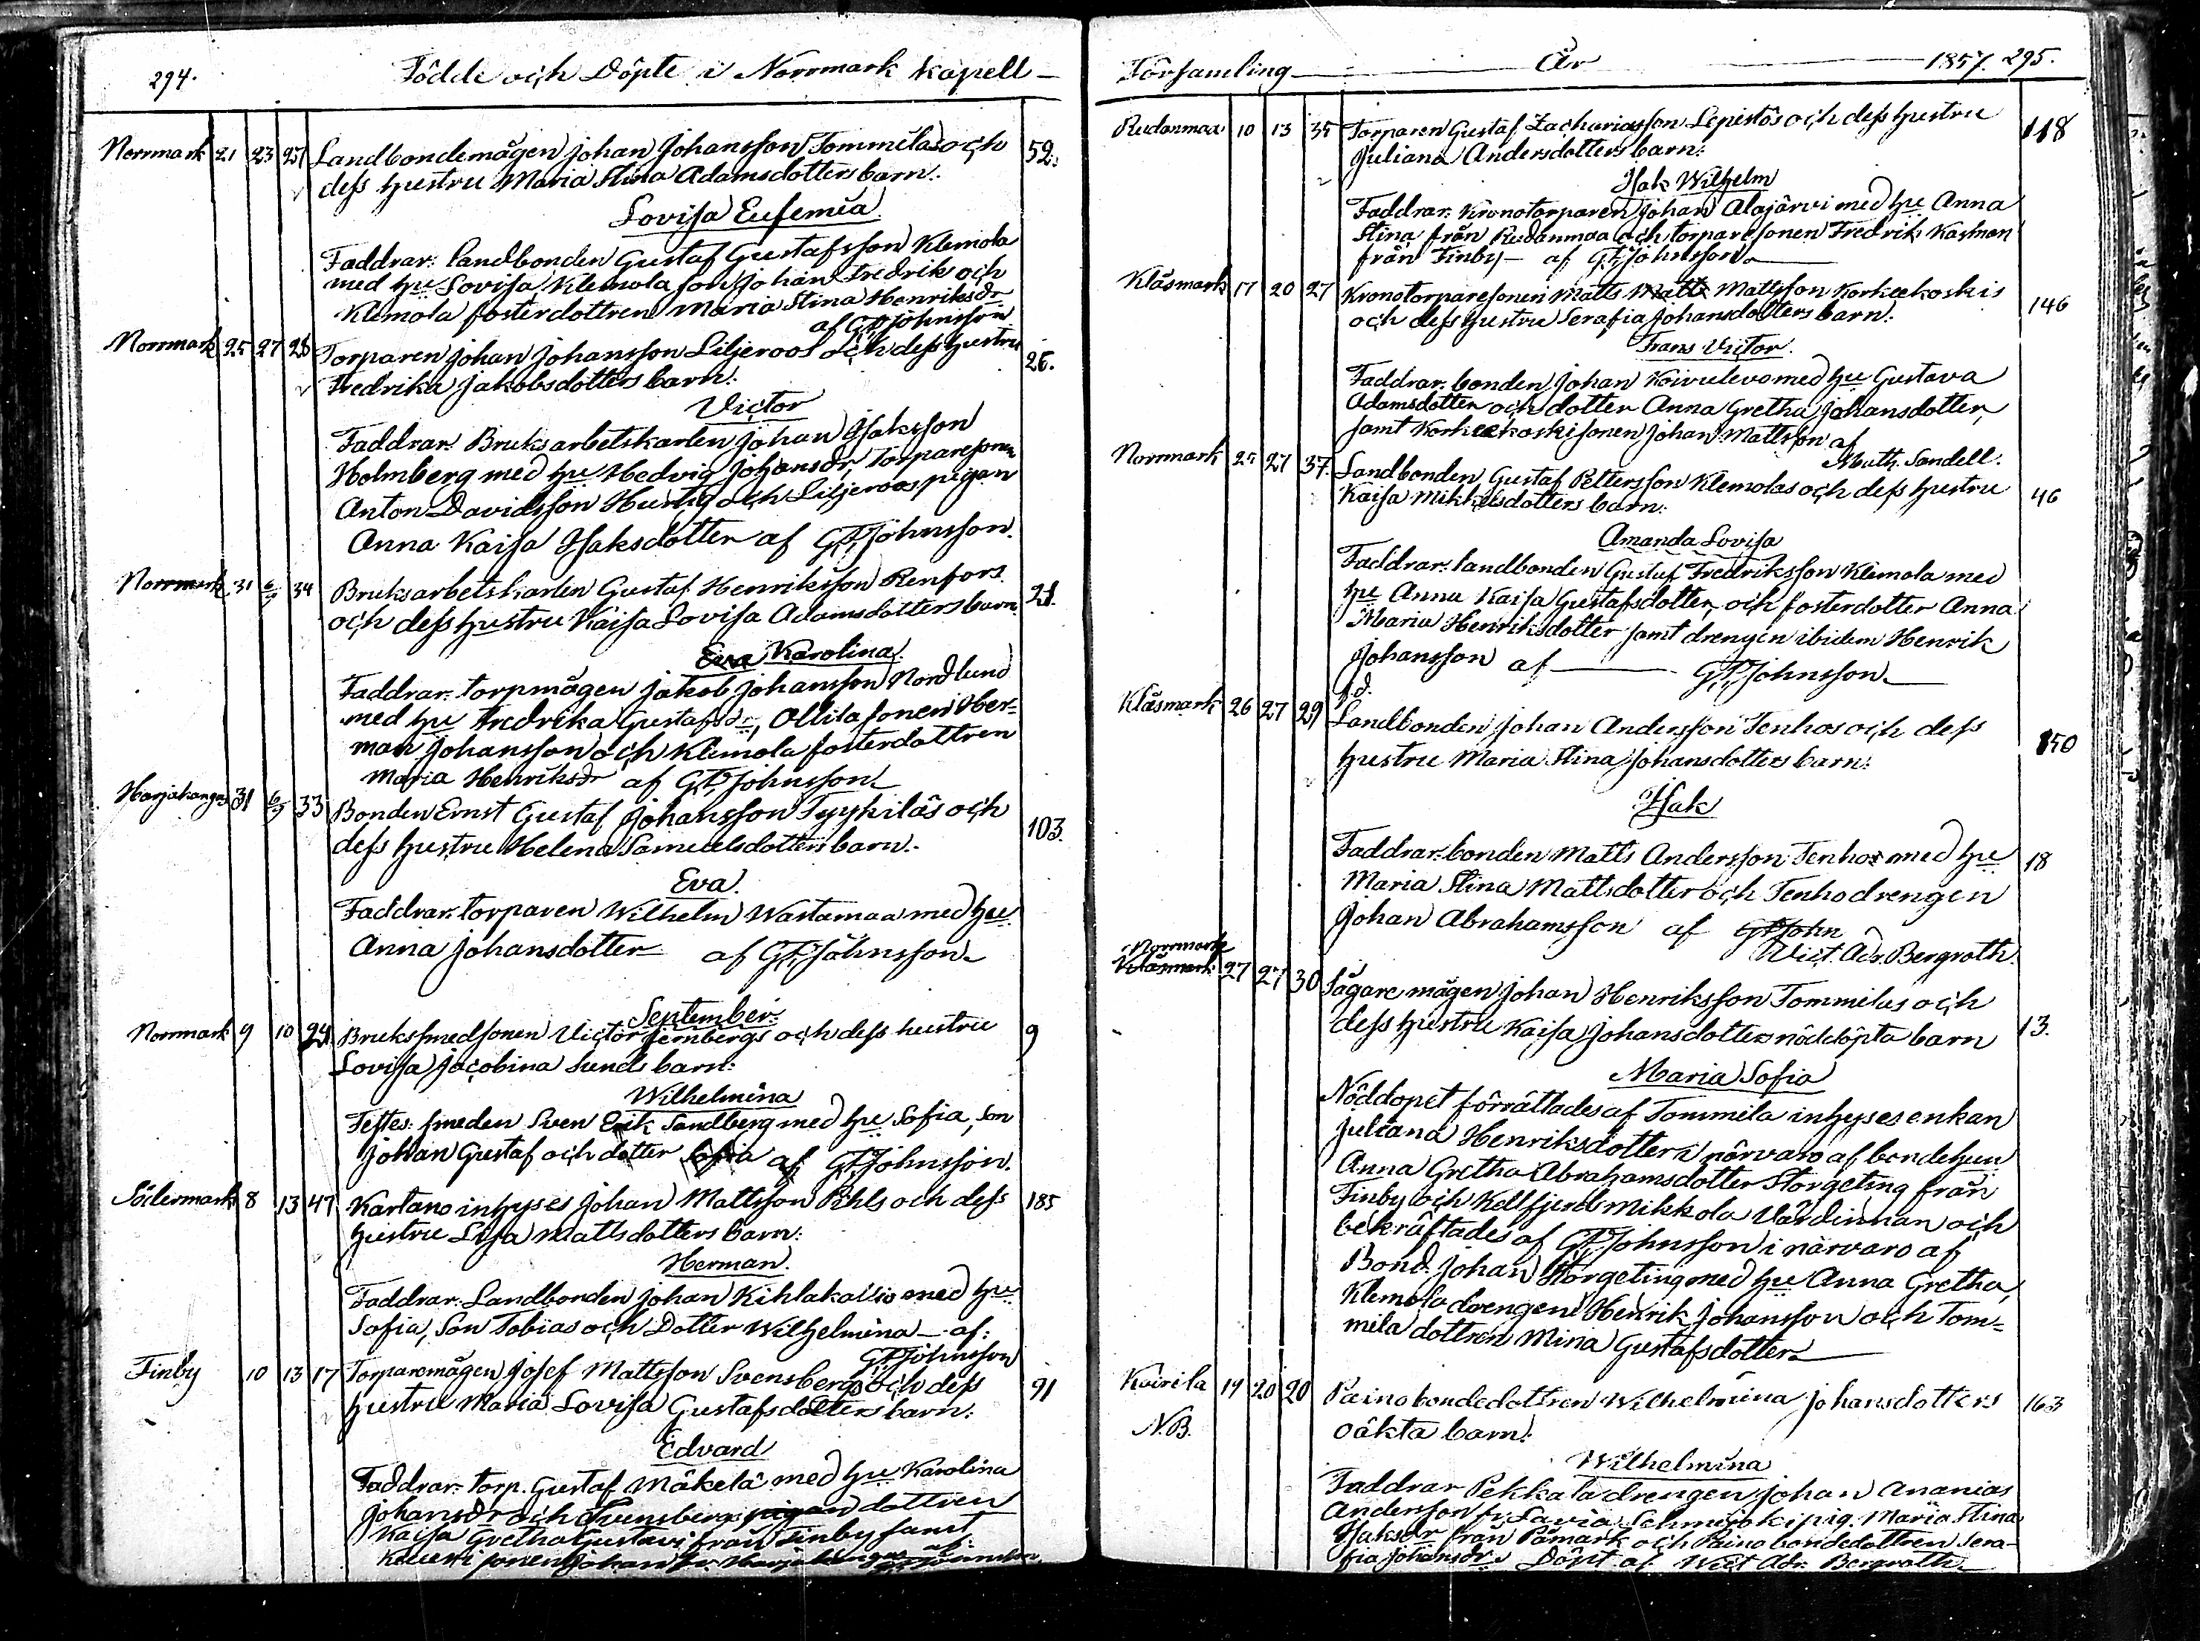 294.
Födde och Döpte i Norrmark Kapell
Norrmark 21 23 25 Landbondemågen Johan Johansson Tommilas och 52.
dess hustru Maria Stina Adamsdotters barn.
Lovisa Eufemia
Faddrar: landbonden Gustaf Gustafsson Klemola
med hu Lovisa Klemola son Johan Fredrik och
Klemola fosterdottren Maria Stina Henriksdr
af G.F. Johnsson
Norrmark 25 27 28 Torparen Johan Johansson Liljeroos och dess hustru 26.
Fredrika Jakobsdotters barn:
Victor
Faddrar: Bruksarbetskarlen Johan Isaksson
Holmberg med hu Hedvig Johansdr, Torparesonen
Anton Davidsson Hurtig och Liljeroos pigan
Anna Kaisa Isaksdotter af G.F. Johnsson.
Norrmark 31 6/9 34 Bruksarbetskarlen Gustaf Henriksson Renfors 21.
och dess hustru Kaisa Lovisa Adamsdotters barn
Eva Karolina
Faddrar: torpmågen Jakob Johansson Nordlund
med hu Fredrika Gustafsdr, Ollila sonen Her=
man Johansson och Klemola fosterdottren
Maria Henriksdr af G.F. Johnsson
Harjakangas 31 6/9 33 Bonden Ernst Gustaf Johansson Tyykiläs och 103.
dess hustru Helena Samuelsdotters barn.
Eva.
Faddrar: torparen Wilhelm Wartamaa med hu
Anna Johansdotter af G.F. Johnsson
September:
Norrmark 9 10 24 Brukssmedsonen Victor Jernbergs och dess hustru 9
Lovisa Jacobina Sunds barn:
Wilhelmina
Testes: smeden Sven Erik Sandberg med hu Sofia, son
Johan Gustaf och dotter Sofia af G.F. Johnsson.
Södermark 8 13 47 Kartano inhyses Johan Mattsson Pihls och dess 185
hustru Lisa Mattsdotters barn:
Herman.
Faddrar: Landbonden Johan Kihlakaisio med hu
Sofia, Son Tobias och Dotter Wilhelmina – af:
G.F. Johnsson
Finby 10 13 17 Torparemågen Josef Mattsson Svensbergs och dess 91
hustru Maria Lovisa Gustafsdotters barn:
Edvard
Faddrar: torp. Gustaf Mäkelä med hu Karolina
Johansdr och Svensbergs pigan dottren
Kaisa Gretha Gustavi från Finby samt
sonen Johan
Församling År 1857. 295.
Rudanmaa 10 13 35 Torparen Gustaf Zachariasson Lepistös och dess hustru 118
Juliana Andersdotters barn:
Isak Wilhelm
Faddrar: Kronotorparen Johan Alajärvi med hu Anna
Stina från Rudanmaa och torparesonen Fredrik Kasman
från Finby – af G.F. Johnsson
Klåsmark 17 20 27 Kronotorparesonen Matts Matts Mattsson Korkeekoskis 146
och dess hustru Serafia Johansdotters barn:
Frans Victor.
Faddrar: bonden Johan Koivulevo med hu Gustava
Adamsdotter och dotter Anna Gretha Johansdotter,
samt Korkeekoski sonen Johan Mattsson af
Math. Sandell.
Norrmark 25 27 37. Landbonden Gustaf Pettersson Klemolas och dess hustru 46
Kaisa Mikkelsdotters barn:
Amanda Lovisa
Faddrar: landbonden Gustaf Fredriksson Klemola med
hu Anna Kaisa Gustafsdotter, och fosterdotter Anna
Maria Henriksdotter samt drengen ibidem Henrik
Johansson af G.F. Johnsson
Klåsmark 26 27 29 Landbonden Johan Andersson Tenhos och dess 150
hustru Maria Stina Johansdotters barn:
Isak
Faddrar: bonden Matts Andersson Tenho med hu 18
Maria Stina Mattsdotter och Tenho drengen
Johan Abrahamsson af G.F. John
Vict. Adr. Bergroth.
Norrmark
Klåsmark 27 27 30 Sågaremågen Johan Henriksson Tommilas och 13.
dess hustru Kaisa Johansdotters nöddöpta barn
Maria Sofia
Nöddopet förrättades af Tommila inhyses enkan
Juliana Henriksdotter i närvaro af bondehun
Anna Gretha Abrahamsdotter Storgeting från
Finby och Kellfjerd Mikkola Värdinnan och
bekräftades af G.F. Johnsson i närvaro af
Bond. Johan Storgeting med hu Anna Gretha,
Klemola drengen Henrik Johansson och Tom=
mila dottren Mina Gustafsdotter
Kvirila 19 20 20 Paino bondedottren Wilhelmina Johansdotters 163
N.B. oäkta barn:
Wilhelmina
Faddrar Pekkala drengen Johan Ananias
Andersson fr. Lavia, pig. Maria Stina
Isaksdr från Påmark och Paino bondedottren Sera-
fia Johansdr. Döpt af Vict Adr. Bergroth